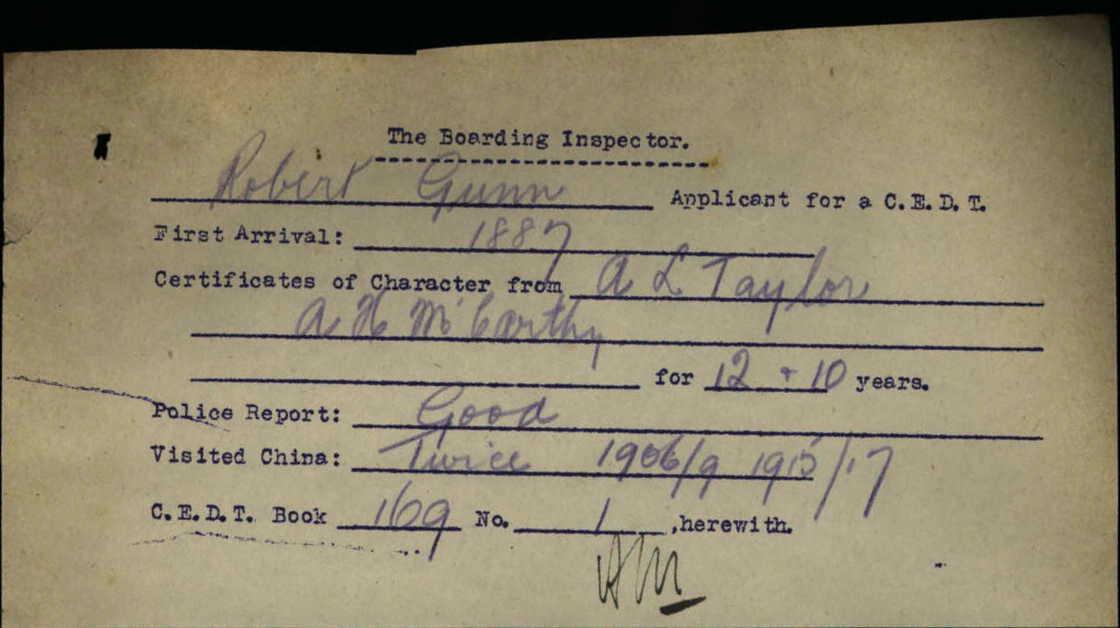 The Boarding Inspector.
Robert Gunn Applicant for a C.E.D.T.
First Arrival: 1887
Certificates of Character from A L Taylor
A H McCarthy
for 12 + 10 years.
Police Report: Good
Visited China: Twice 1906/9 1915/17
C.E.D.T. Book 169 No. 1 ,herewith.